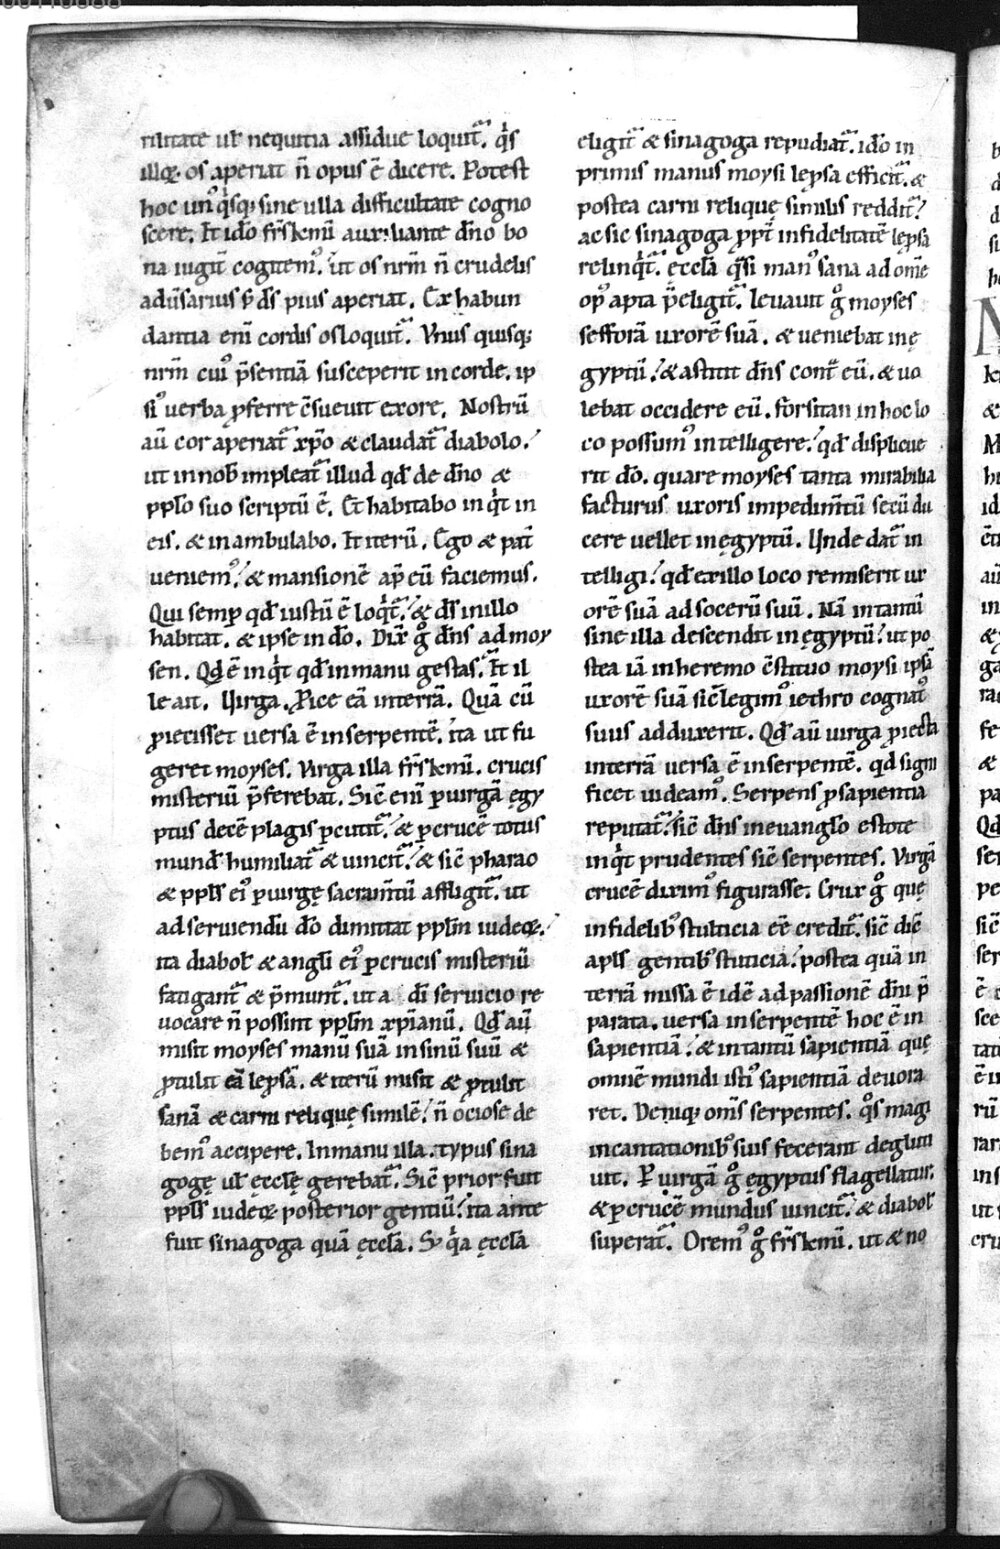 rilitate ul̄ nequitia assidue loquit᷑. q̇s
illoꝝ. os aperiat n̄ opus ē dicere. Potest
hoc unꝰq̇sq; sine ulla difficultate cogno
scere. Et ido fr̄s km̄i auxiliante dn̄o bo
na iugit᷑ cogitemꝰ. ut os nr̄m n̄ crudelis
adūsarius s; ds̄ pius aperiat. Ex habun
dantia eni cordis os loquit᷑. Vnus quisq;
nr̄m cuiꝰ p̄sentiā susceperit in corde. ip
siꝰ uerba ꝓferre c̄sueuit ex ore. Nostrū
aū cor aperiat᷑ xp̄o & claudat᷑ diabolo.
ut in nob̄ impleat᷑ illud qd̄ de dn̄o &
pplo suo scriptū ē. Et habitabo inq̇t in
eis. & inambulabo. Et iterū. Ego & pat̄
ueniemꝰ. & mansionē ap̄ eū faciemus.
Qui semp̱ qd̄ iustū ē loq̇t᷑. & ds̄ in illo
habitat. & ipse in do. Dix̄ g̊ dn̄s ad moy
sen. Qd̄ ē inq̇t qd̄ in manu gestas. Et il
le ait. Uirga. Piice eā in terrā. Quā cū
ꝓiecisset uersa ē in serpentē. ita ut fu
geret moyses. Virga illa fr̄s km̄i. crucis
misteriū p̄ferebat. Sic̄ eni ꝑ uirgā ęgy
ptus decē plagis ꝑcutit᷑. & ꝑ crucē totus
mundꝰ humiliat᷑ & uincit᷑. & sic̄ pharao
& ppls̄ eiꝰ ꝑ uirgę sacram̄tū affligit᷑. ut
ad seruiendū do dimittat pplm̄ iudeoꝝ.
ita diabol̄ & angli eiꝰ ꝑ crucis misteriū
fatigant᷑ & p̄munt᷑. ut a di seruicio re
uocare n̄ possint pplm̄ xp̄ianū. Qd̄ aū
misit moyses manū suā in sinū suū &
ꝓtulit eā lepsā. & iterū misit & ꝓtulit
sanā & carni relique similē. n̄ ociose de
bemꝰ accipere. In manu illa. typus sina
gogę ul̄ ęccłę gerebat᷑. Sic̄ prior fuit
ppls̄ iudeoꝝ posterior gentiū. ita ante
fuit sinagoga quā ęccła. S; q̇a ęccła
eligit᷑ & sinagoga repudiat᷑. ido in
primis manus moysi lępsa efficit᷑. &
postea carni relique similis reddit᷑.
ac sic sinagoga ꝓpt̄ infidelitatē lępsa
relinq̇t᷑. ęccła q̇si manꝰ sana ad om̄e
opꝰ apta p̄eligit᷑. Leuauit g̊ moyses
sefforā uxorē suā. & ueniebat in ę
gyptū. & astitit dn̄s cont᷑ eū. & uo
lebat occidere eū. Forsitan in hoc lo
co possumꝰ intelligere. qd̄ displicue
rit do. quare moyses tanta mirabilia
facturus uxoris impedim̄tū secū du
cere uellet in ęgyptū. Unde dat᷑ in
telligi. qd̄ ex illo loco remiserit ux
orē suā ad socerū suū. Nā in tantū
sine illa descendit in ęgyptū. ut po
stea iā in heremo c̄stituto moysi ipsā
uxorē suā sic̄ legimꝰ iethro cognatꝰ
suus adduxerit. Qd̄ aū uirga ꝓiecta
in terrā uersa ē in serpentē. qd signi
ficet uideamꝰ. Serpens ꝓ sapientia
reputat᷑. sic̄ dn̄s in euanglo estote
inq̇t prudentes sic̄ serpentes. Virgā
crucē diximꝰ figurasse. Crux g̊ quę
infidelibꝰ stulticia eē credit᷑. sic̄ dic̄
apls̄ gentibꝰ stulticiā. postea quā in
terrā missa ē idē ad passionē dn̄i p̄
parata. uersa in serpentē hoc ē in
sapientiā. & in tantū sapientiā quę
omnē mundi istiꝰ sapientiā deuora
ret. Deniq; om̄s serpentes. q̊s magi
incantationibꝰ suis fecerant deglutti
uit. Ꝑ uirgā g̊ ęgyptus flagellatur.
& ꝑ crucē mundus uincit᷑. & diabol̄
superat᷑. Oremꝰ g̊ fr̄s km̄i. ut & no